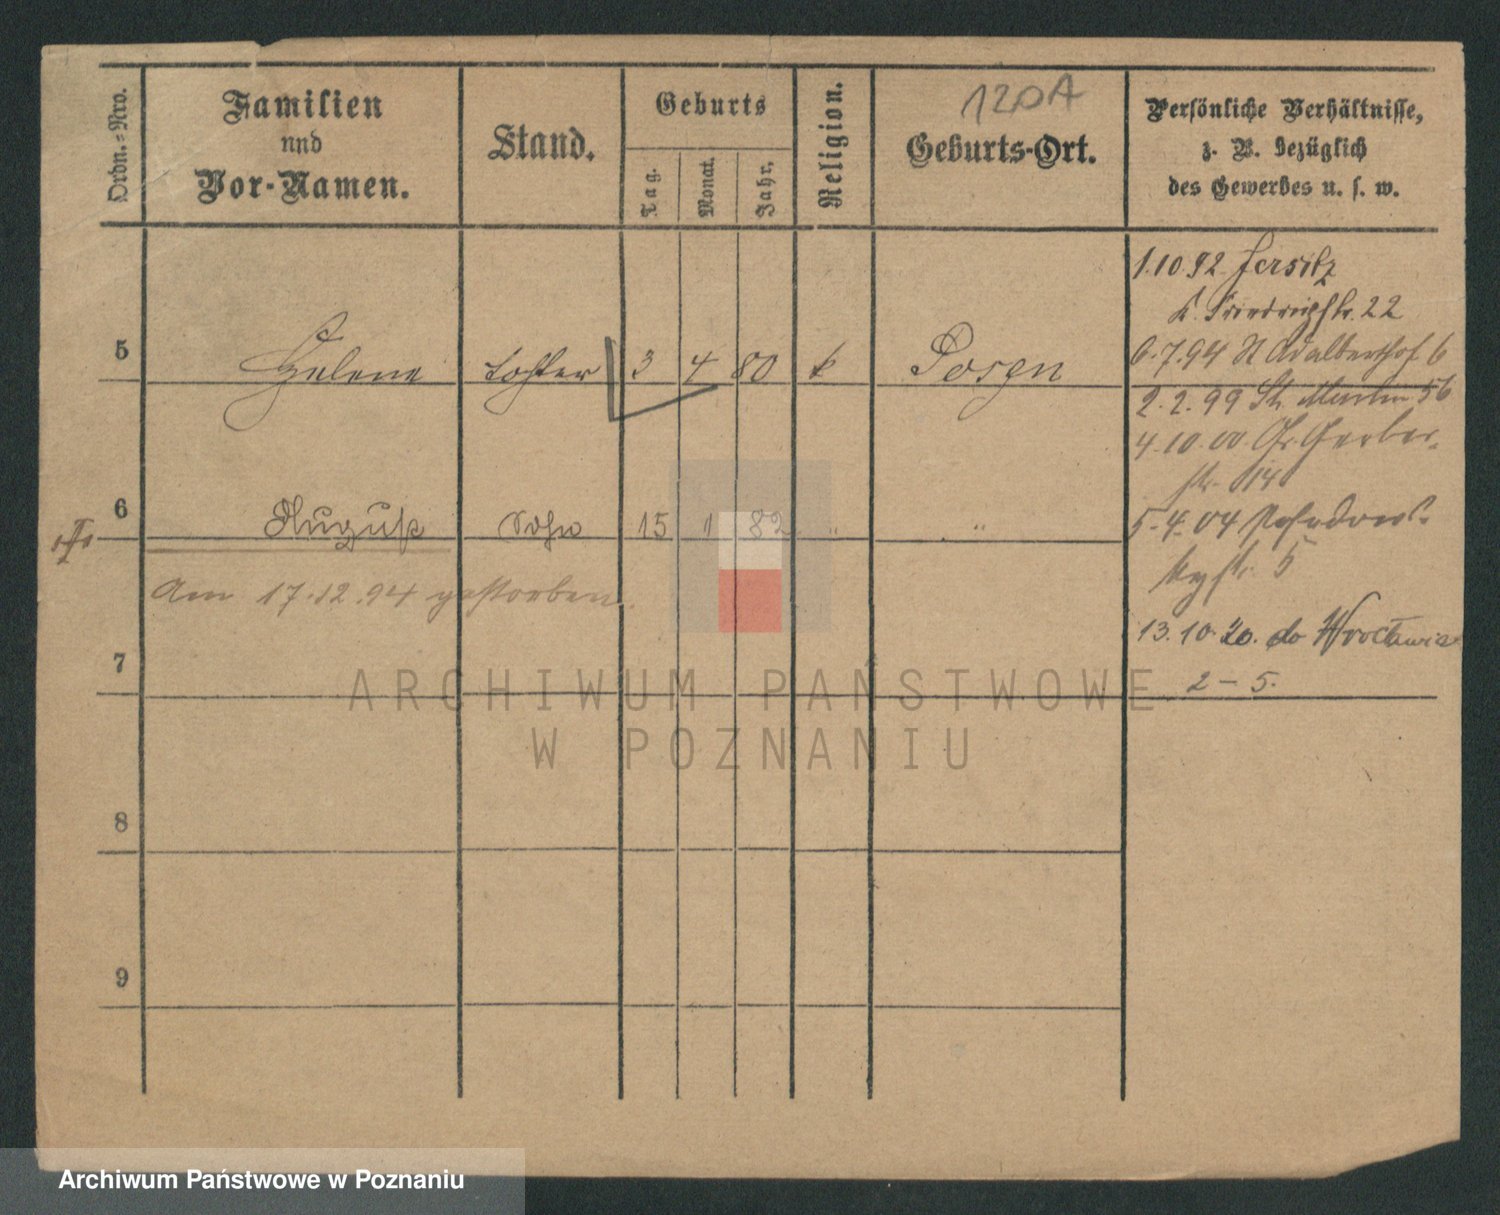 120A
Ordn.-Nro.
Familien
und
Vor-Namen.
Stand.
Geburts
Tag.
Monat.
Jahr.
Religion.
Geburts-Ort.
Persönliche Verhältnisse,
z. B. bezüglich
des Gewerbes u. s. w.
1.10.92 Jersitz
K. Friedrichstr. 22
5 Helene Tochter 3 4 80 k Posen
6.7.94 Adalberthof 6
2.2.99 St. Martin 56
4.10.00. Gr. Gerber-
str. 14
6 August Sohn 15 1 82 " "
5.4.04
str. 5
Am 17.12.94 gestorben.
13.10.20. do Wrocławia
7
2-5.
8
9
ARCHIWUM PAŃSTWOWE
W POZNANIU
Archiwum Państwowe w Poznaniu